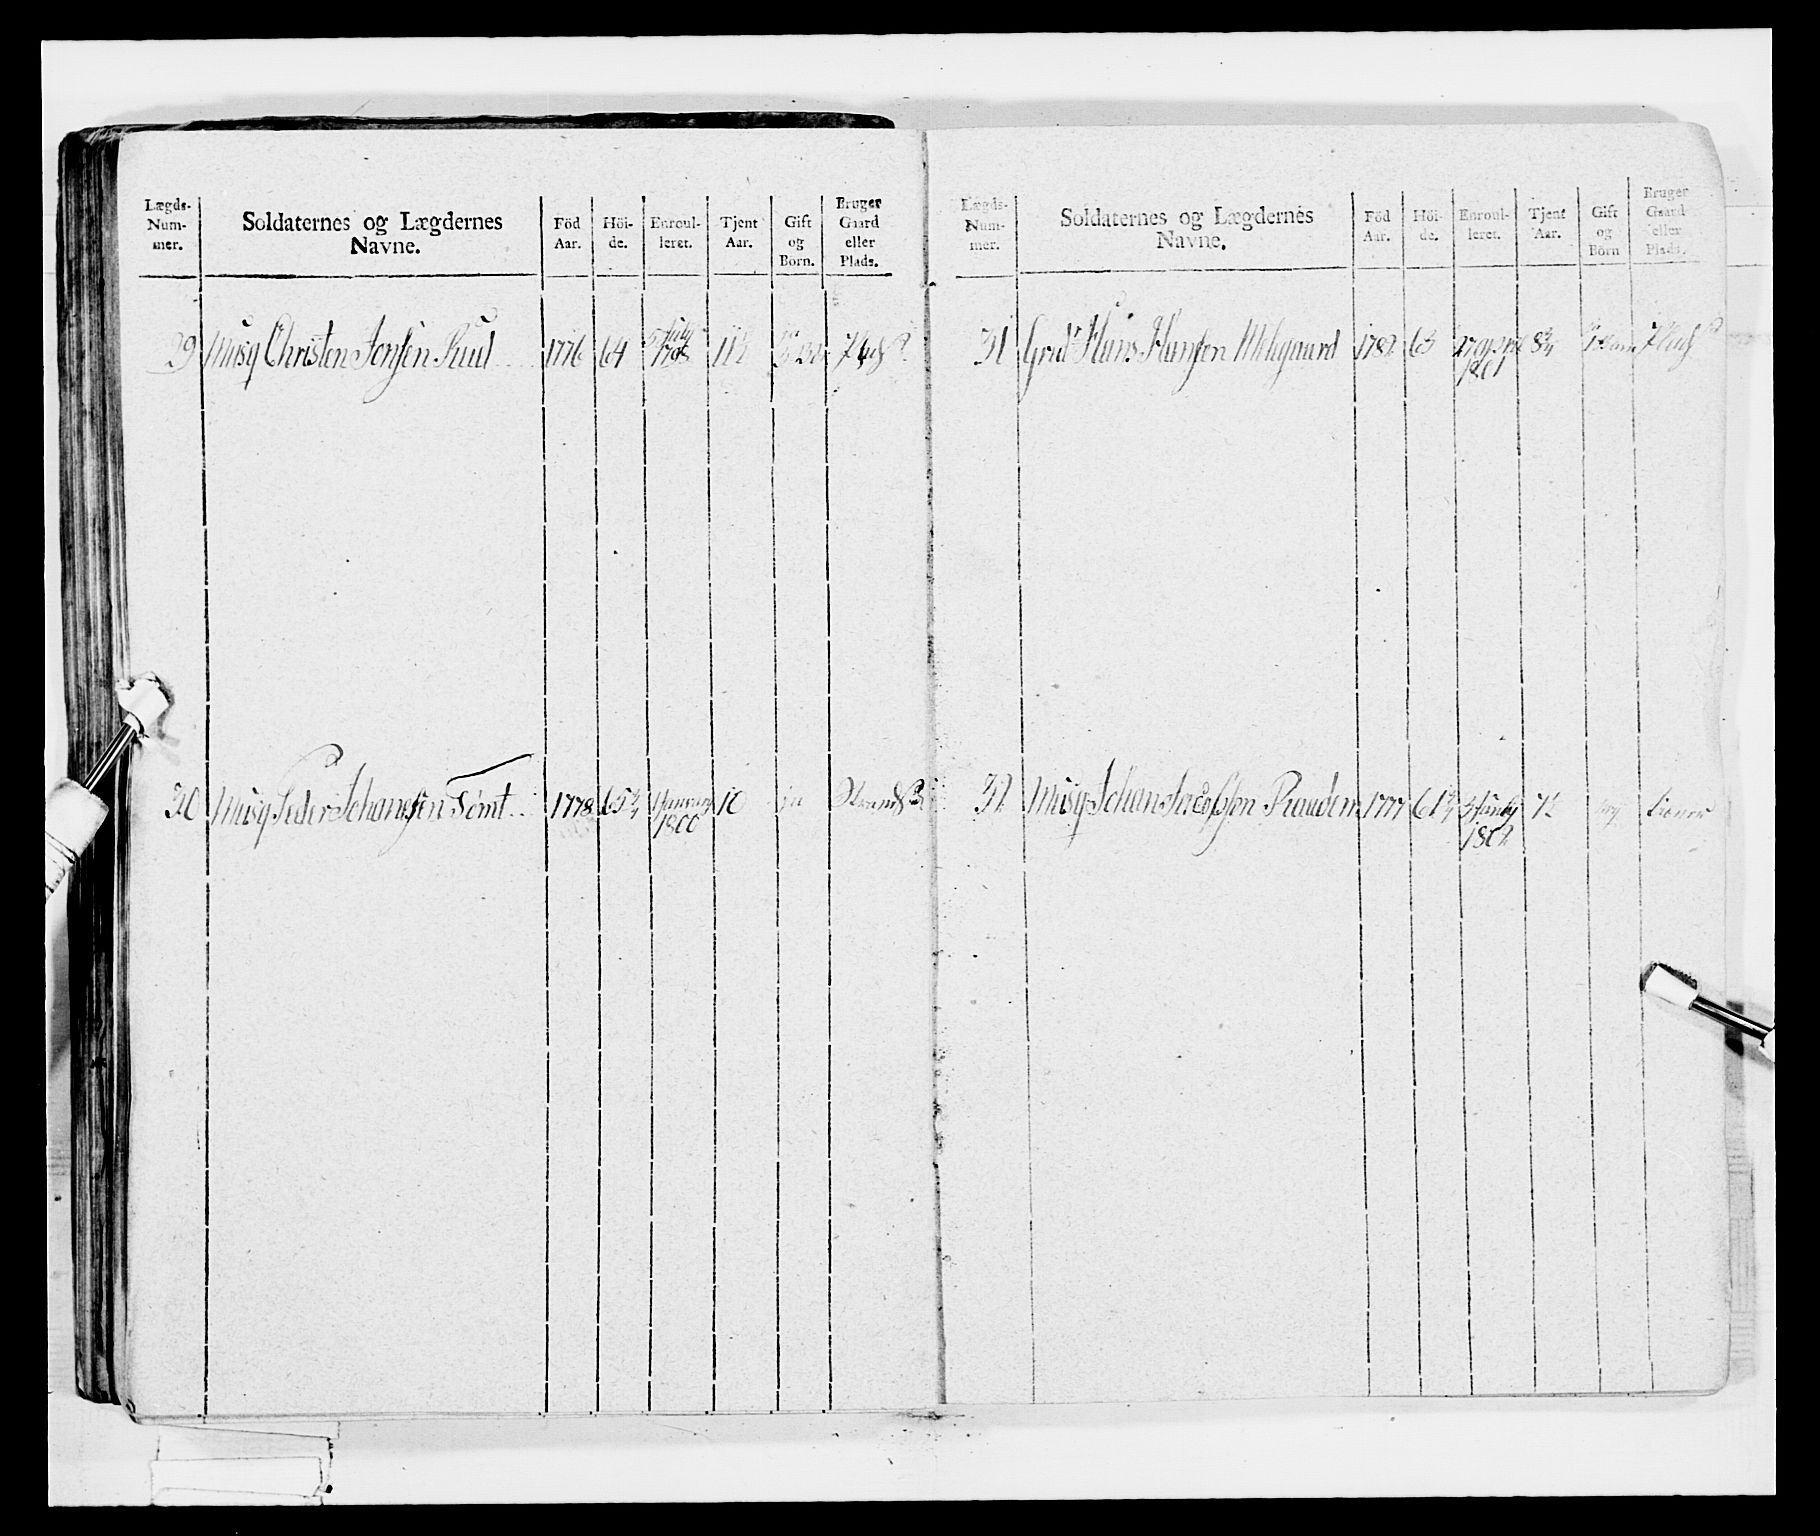 Lægds-
Num-
mer.
Soldaternes og Lægdernes
Navne.
Föd
Aar.
Höi-
de.
Enroul-
leret.
Tjent
Aar.
Gift
og
Börn.
Bruger
Gaard
eller
Plads.
29 Musq Christen Jensen Ruud 1776 64 5 July 1798 11½
30 Musq Peder Johannesen Tömt 1778 65¾ 1 January 1800 10
Lægds-
Num-
mer.
Soldaternes og Lægdernes
Navne.
Föd
Aar.
Höi-
de.
Enroul-
leret.
Tjent
Aar.
Gift
og
Börn
Bruger
Gaard
eller
Plads.
31 Hans Hansen 1782 63 1801 8¾
32 Musq Johan 1777 61¾ 3 July 1802 7½